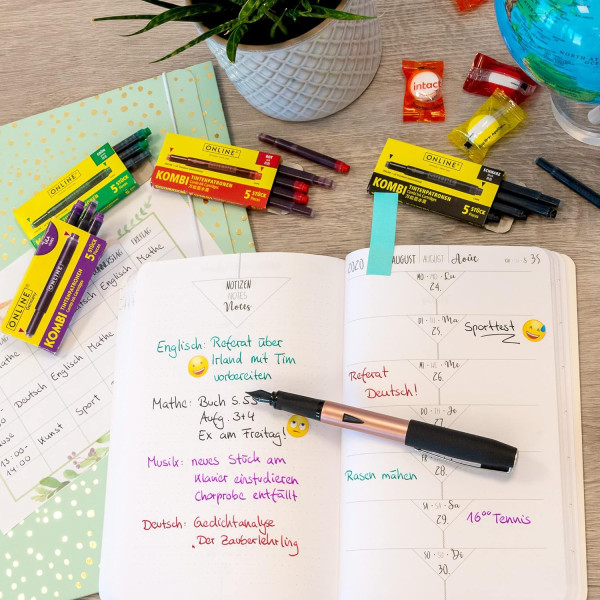 ONLINE
GRÜN
KOMBI
TINTENPATRONEN
5 STÜCK
ONLINE
ROT
KOMBI
TINTENPATRONEN
5 STÜCK
ONLINE
SCHWARZ
KOMBI
TINTENPATRONEN
5 STÜCK
ONLINE
KOMBI
TINTENPATRONEN
5 STÜCK
intact
FREITAG
Mathe
Englisch
Mathe
Deutsch
Englisch
Mathe
Kunst
Sport
13:00-
14:00
NOTIZEN
NOTES
Notes
Englisch: Referat über
Irland mit Tim
vorbereiten
Mathe: Buch S. 55
Aufg. 3+4
Ex am Freitag!
Musik: neues Stück am
Klavier einstudieren
Chorprobe entfällt
Deutsch: Gedichtanalyse
"Der Zauberlehrling
2020
AUGUST AUGUST Août
35
MO · MO · Lu
24.
DI · TU · Ma
25.
Sporttest
MI · WE · Me
26.
Referat
Deutsch!
DO · TH · Je
28.
Rasen mähen
SA · SA · Sa
29.
16⁰⁰ Tennis
SO · SO · Di
30.